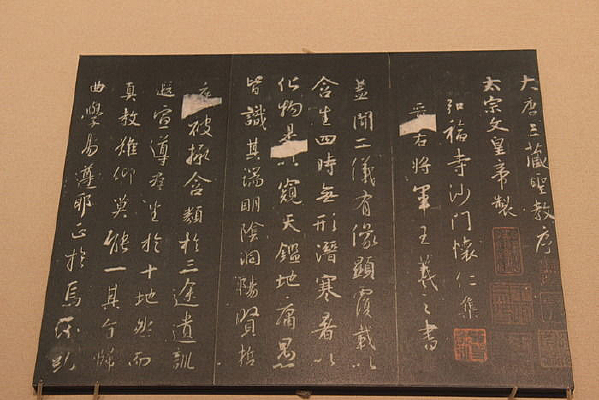 大唐三藏聖教序
太宗文皇帝製
弘福寺沙門懷仁集
右將軍王羲之書
蓋聞二儀有像顯覆載以
含生四時無形潛寒暑以
化物是以窺天鑑地庸愚
皆識其端明陰洞陽賢哲
被拯含類於三途遺訓
遐宣導群生於十地然而
真教難仰莫能一其旨歸
曲學易遵耶正於焉紛糺